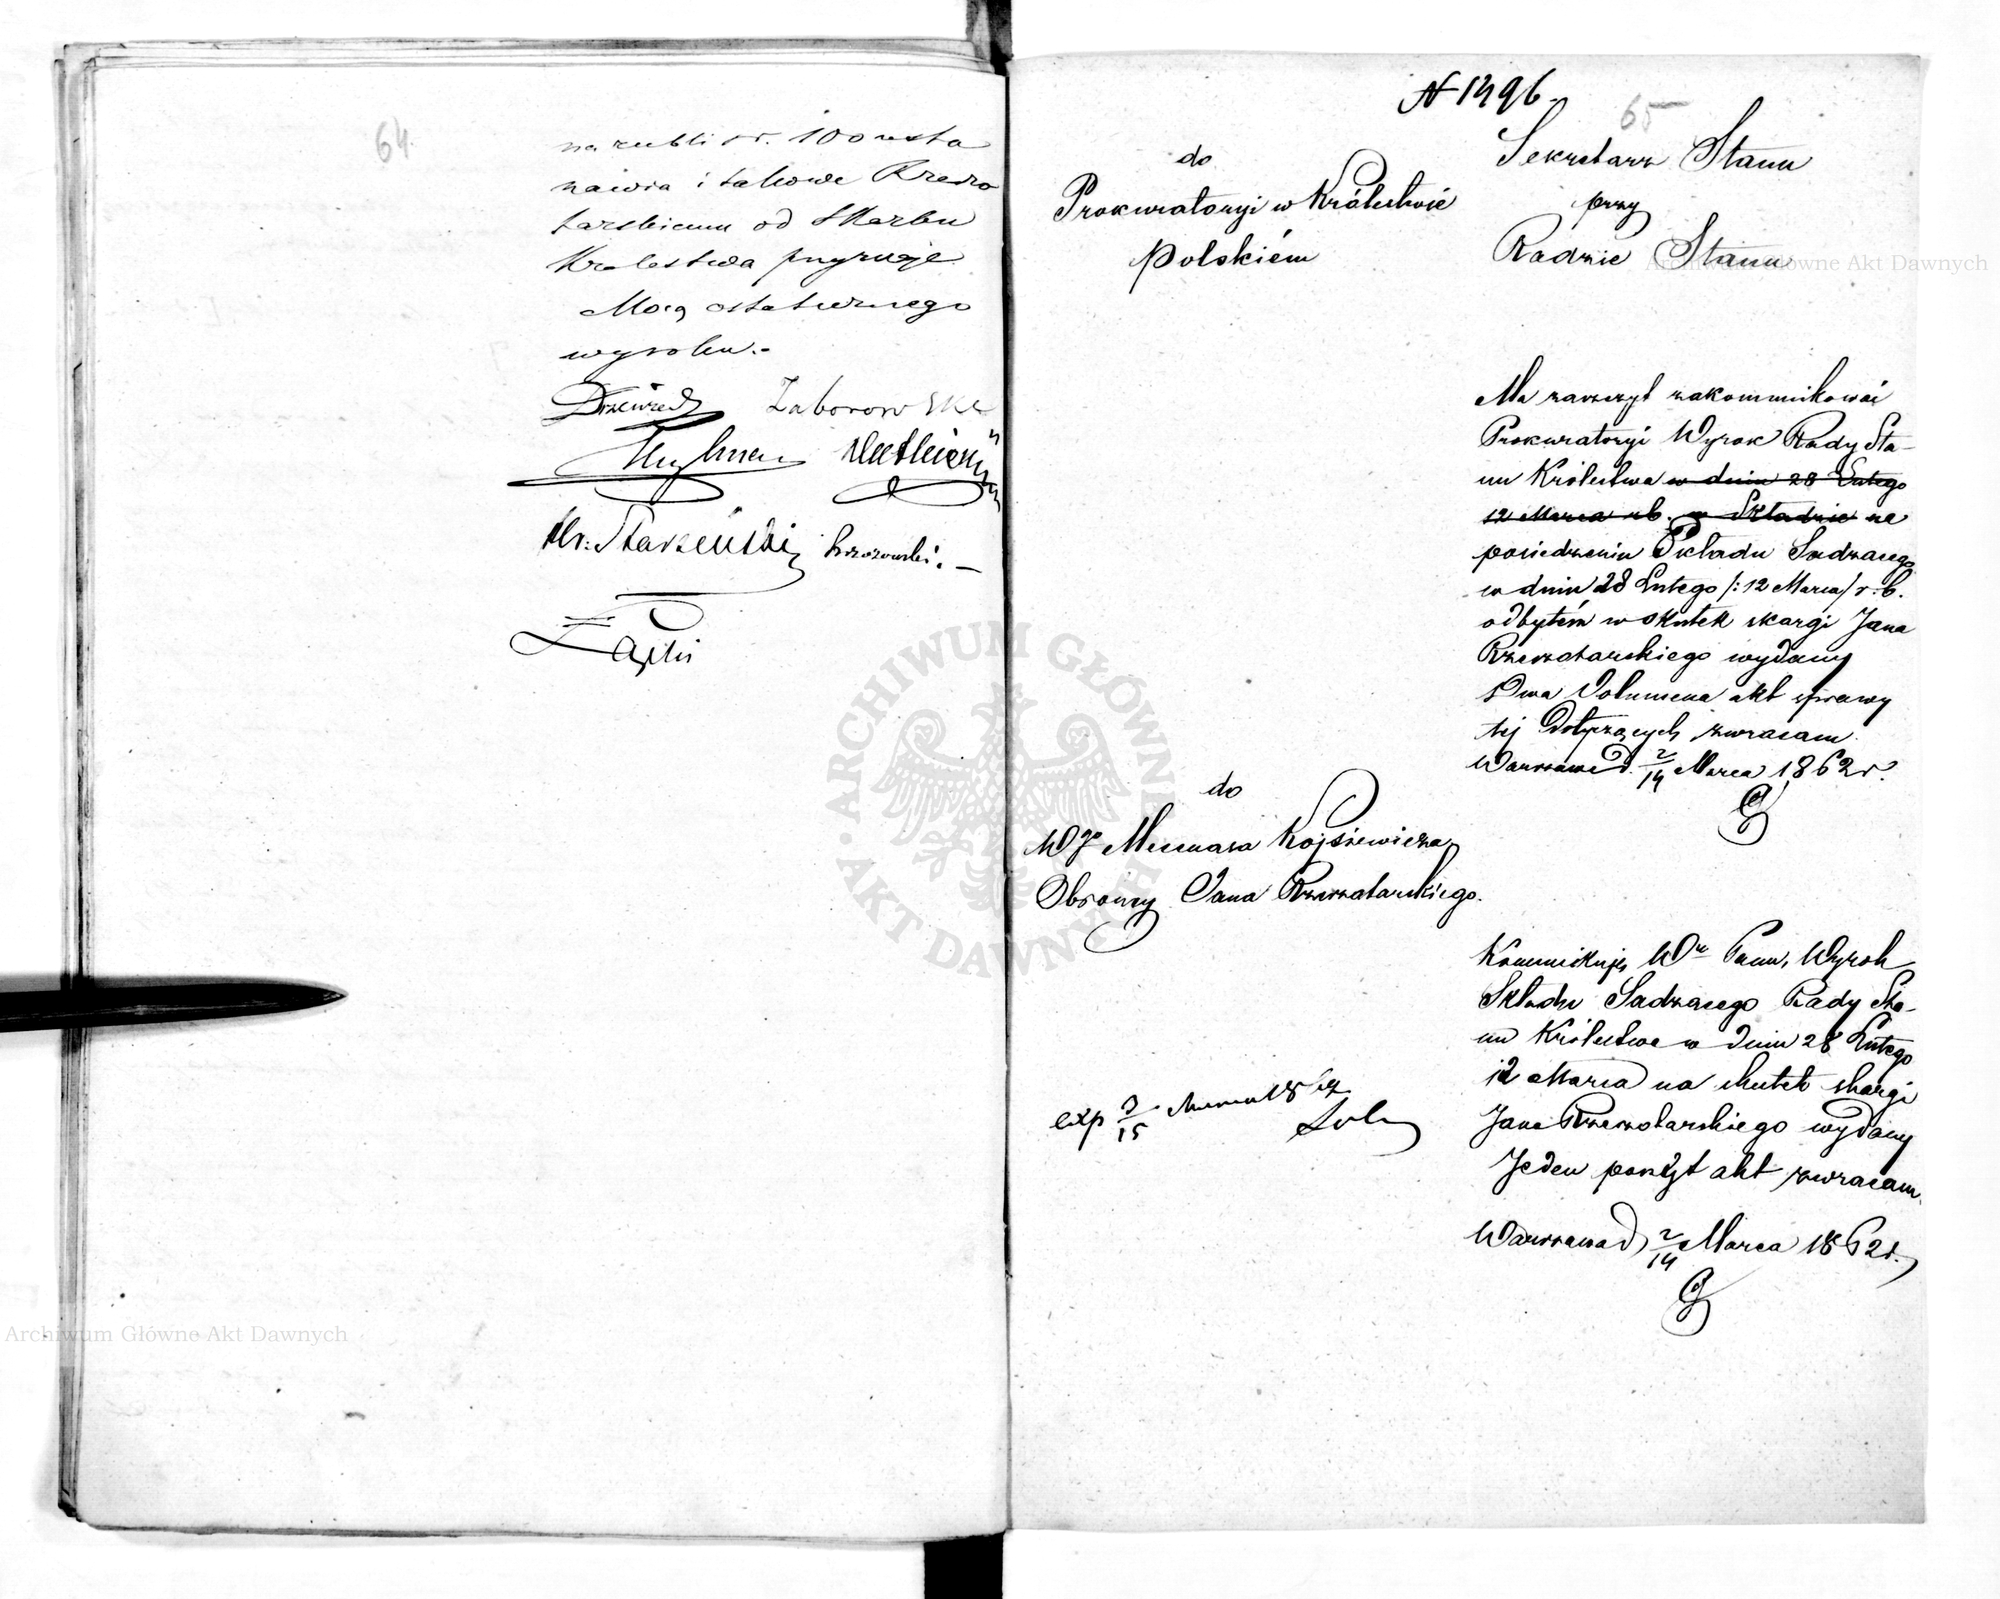 64.
na rubli sr. 100 usta
nawia i takowe Rzeszo
tarskiemu od Skarbu
Krolestwa przyznaje
Mocą ostatecznego
wyroku.-
Drzewiecki Zaborowski
Hr: Starzeński Brzozowski. -
N 1496.
65
do
Prokuratoryi w Królestwie
Polskiém
Sekretarz Stanu
przy
Radzie Stanu
Ma zaszczyt zakommunikować
Prokuratoryi Wyrok Rady Sta-
nu Królestwa w dniu 28 Lutego
12 Marca rb. w Składzie na
posiedzeniu Składu Sądzącego
w dniu 28 Lutego /: 12 Marca/ r. b.
odbytém w skutek skargi Jana
Rzeszotarskiego wydany
Dwa Volumena akt sprawy
tej dotyczących zwracam.
Warszawa d. 2/14 Marca 1862 r.
do
Wgo Mecenasa Kajsiewicza
Obrońcy Jana Rzeszotarskiego.
Kommunikuję Wu Panu, Wyrok
Składu Sądzącego Rady Sta-
nu Królestwa w dniu 28 Lutego
12 Marca na skutek skargi
Jana Rzeszotarskiego wydany
Jeden poszyt akt zwracam.
Warszawa d. 2/14 Marca 1862 r.
exp 3/15 Marca 1862
Archiwum Główne Akt Dawnych
Archiwum Główne Akt Dawnych
ARCHIWUM GŁÓWNE AKT DAWNYCH